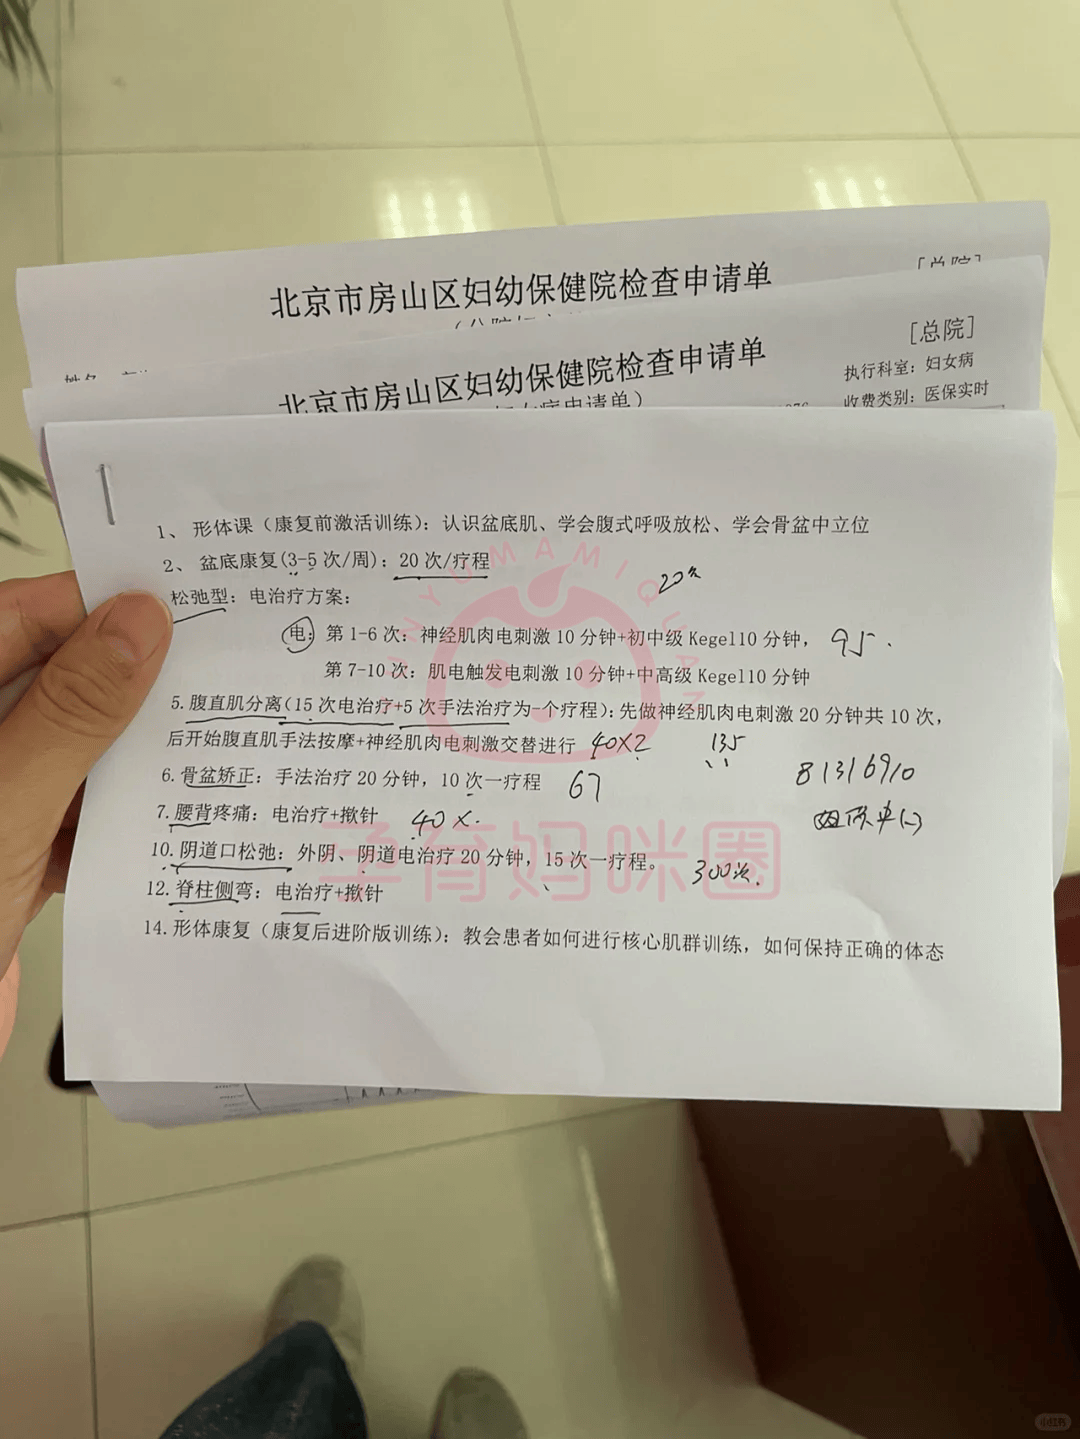 北京市房山区妇幼保健院检查申请单
[总院]
北京市房山区妇幼保健院检查申请单
[总院]
执行科室：妇女病
收费类别：医保实时
1、 形体课（康复前激活训练）：认识盆底肌、学会腹式呼吸放松、学会骨盆中立位
2、 盆底康复(3-5 次/周)：20 次/疗程
20次
松弛型：电治疗方案：
电：第 1-6 次：神经肌肉电刺激 10 分钟+初中级 Kegel10 分钟， 95.
第 7-10 次：肌电触发电刺激 10 分钟+中高级 Kegel10 分钟
5.腹直肌分离(15 次电治疗+5 次手法治疗为-个疗程)：先做神经肌肉电刺激 20 分钟共 10 次，
后开始腹直肌手法按摩+神经肌肉电刺激交替进行 40X2 135
81316910
6.骨盆矫正：手法治疗 20 分钟，10 次一疗程 67
7.腰背疼痛：电治疗+揿针 40X.
10.阴道口松弛：外阴、阴道电治疗 20 分钟，15 次一疗程。 300次.
12.脊柱侧弯：电治疗+揿针
14.形体康复（康复后进阶版训练）：教会患者如何进行核心肌群训练，如何保持正确的体态
YUMAMIQUAN
孕育妈咪圈
小红书